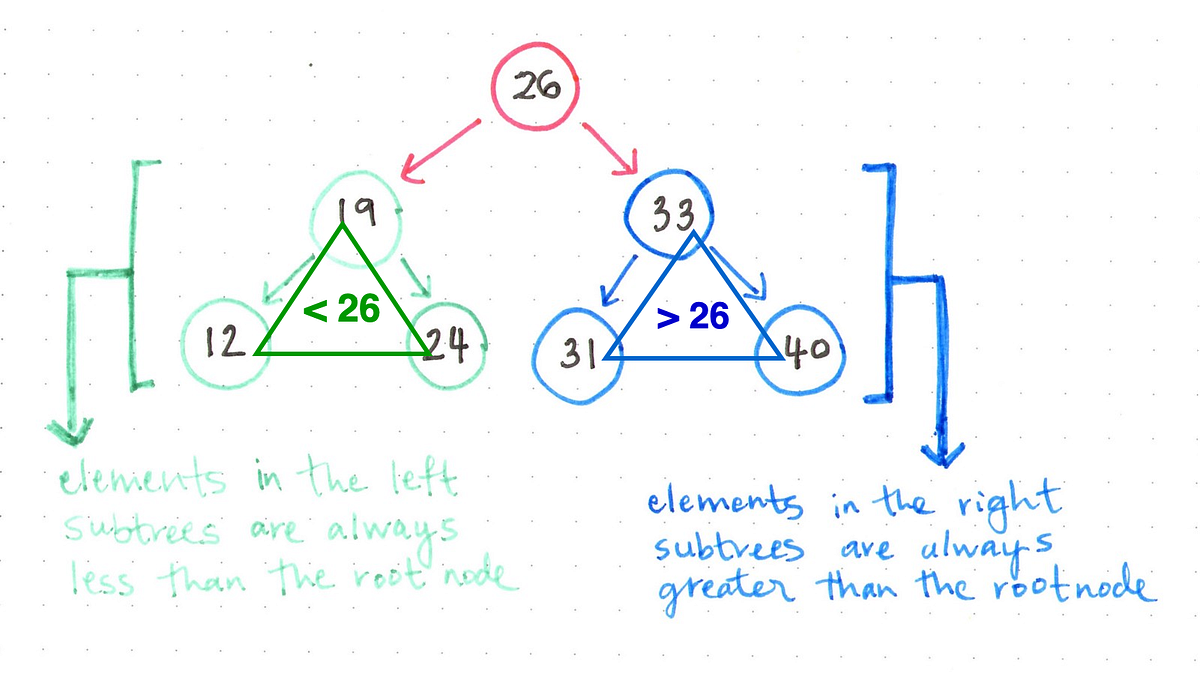 26
19
33
< 26
> 26
12
24
31
40
elements in the left
subtrees are always
less than the root node
elements in the right
subtrees are always
greater than the rootnode